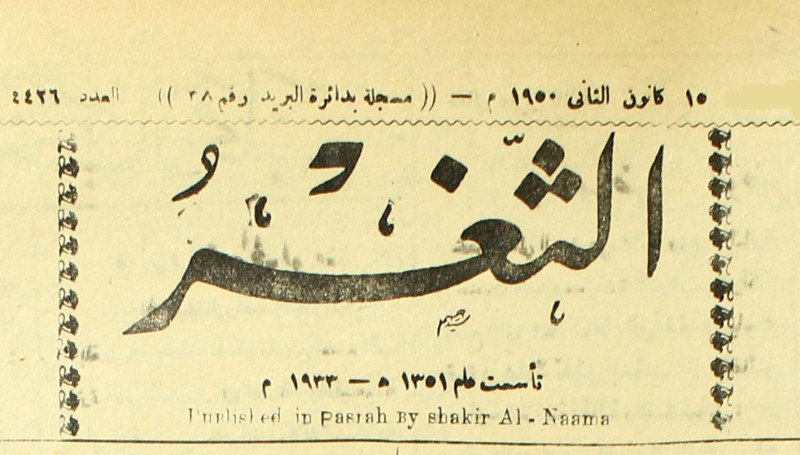 ١٥ كانون الثانى ١٩٥٠ م — (( مسجلة بدائرة البريد ورقم ٣٨ )) العدد ٤٤٢٦
الثَّغْرُ
تأسست عام ١٣٥١ ه — ١٩٣٣ م
Published in Pasrah By shakir Al - Naama